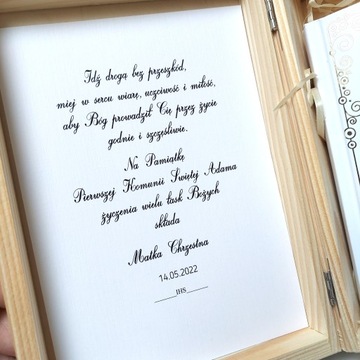 Idź drogą bez przeszkód,
miej w sercu wiarę, uczciwość i miłość,
aby Bóg prowadził Cię przez życie
godnie i szczęśliwie.
Na Pamiątkę
Pierwszej Komunii Świętej Adama
życzenia wielu łask Bożych
składa
Matka Chrzestna
14.05.2022
______IHS______